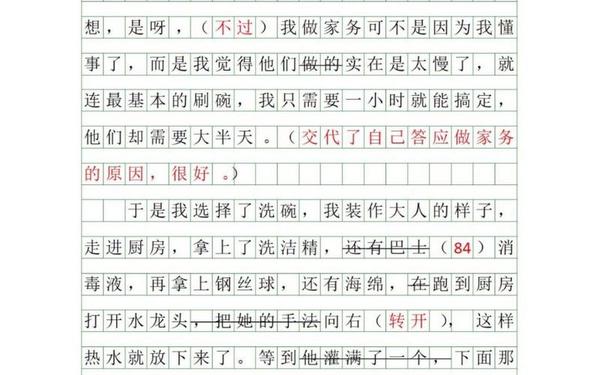 想，是呀，（不过）我做家务可不是因为我懂
事了，而是我觉得他们做的实在是太慢了，就
连最基本的刷碗，我只需要一小时就能搞定，
他们却需要大半天。（交代了自己答应做家务
的原因，很好。）
于是我选择了洗碗，我装作大人的样子，
走进厨房，拿上了洗洁精，还有巴士（84）消
毒液，再拿上钢丝球，还有海绵，在跑到厨房
打开水龙头，把她的手法向右（转开），这样
热水就放下来了。等到他灌满了一个，下面那